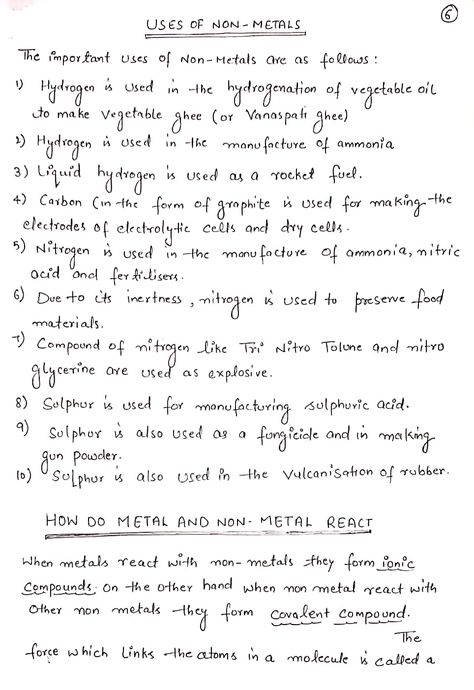 6
USES OF NON-METALS
The important uses of Non-Metals are as follows:
1) Hydrogen is used in the hydrogenation of vegetable oil
to make vegetable ghee (or Vanaspati ghee)
2) Hydrogen is used in the manufacture of ammonia
3) Liquid hydrogen is used as a rocket fuel.
4) Carbon (in the form of graphite is used for making the
electrodes of electrolytic cells and dry cells.
5) Nitrogen is used in the manufacture of ammonia, nitric
acid and fertilisers.
6) Due to its inertness, nitrogen is used to preserve food
materials.
7) Compound of nitrogen like Tri Nitro Tolune and nitro
glycerine are used as explosive.
8) Sulphur is used for manufacturing sulphuric acid.
9) Sulphur is also used as a fungicide and in making
gun powder.
10) Sulphur is also used in the vulcanisation of rubber.
HOW DO METAL AND NON-METAL REACT
When metals react with non-metals they form ionic
compounds. On the other hand when non metal react with
other non metals they form covalent compound.
The
force which links the atoms in a molecule is called a